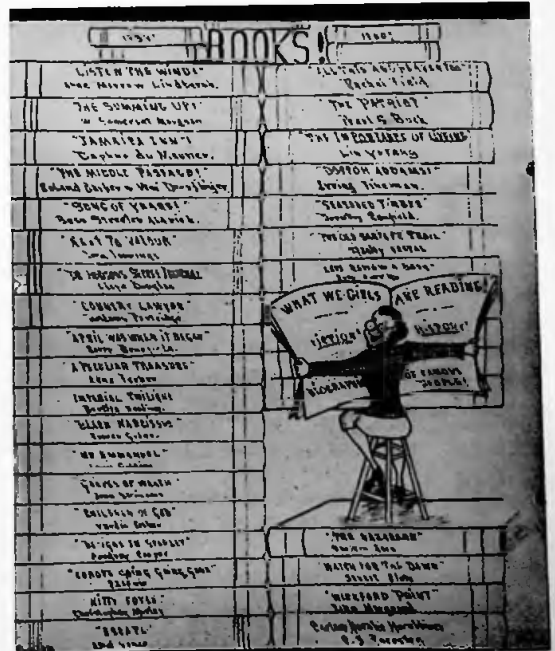 1939
BOOKS!
1940
"LISTEN THE WIND!"
Anne Morrow Lindbergh.
"THE SUMMING UP!"
W. Somerset Maugham
"JAMAICA INN"!
Daphne du Maurier.
"THE MIDDLE PASSAGE!"
Roland Barker
"SONG OF YEARS!"
Bess Streeter Aldrich.
"NEXT TO VALOUR"
Jennings
DR HUDSONS SECRET JOURNAL
Lloyd Douglas
"COUNTRY LAWYER"
Partridge
"APRIL WAS WHEN IT BEGAN"
"A PECULIAR TREASURE"
Edna Ferber
IMPERIAL TWILIGHT
"BLACK NARCISSUS"
Rumer Godden
"MR EMMANUEL"
Louis Golding
GRAPES OF WRATH
John Steinbeck
"CHILDREN OF GOD"
Vardis Fisher
Cooper
"EUROPE GOING GOING GONE"
KITTY FOYLE
Christopher Morley
"ESCAPE"
"ALL THIS AND HEAVEN TOO"
Rachel Field
"THE PATRIOT"
Pearl S Buck
"THE IMPORTANCE OF LIVING
Lin Yutang
"DOCTOR ADDAMS!"
Irving Fineman.
SEASONED TIMBER"
Dorothy Canfield.
THE OLD SANTA FE TRAIL"
WHAT WE GIRLS ARE READING!
FICTION!
HISTORY!
BIOGRAPHY
OF FAMOUS
PEOPLE!
"THE NAZARENE"
Sholem Asch
"WATCH FOR THE DAWN"
Stuart Cloete
POINT"
John
C. S. Forester